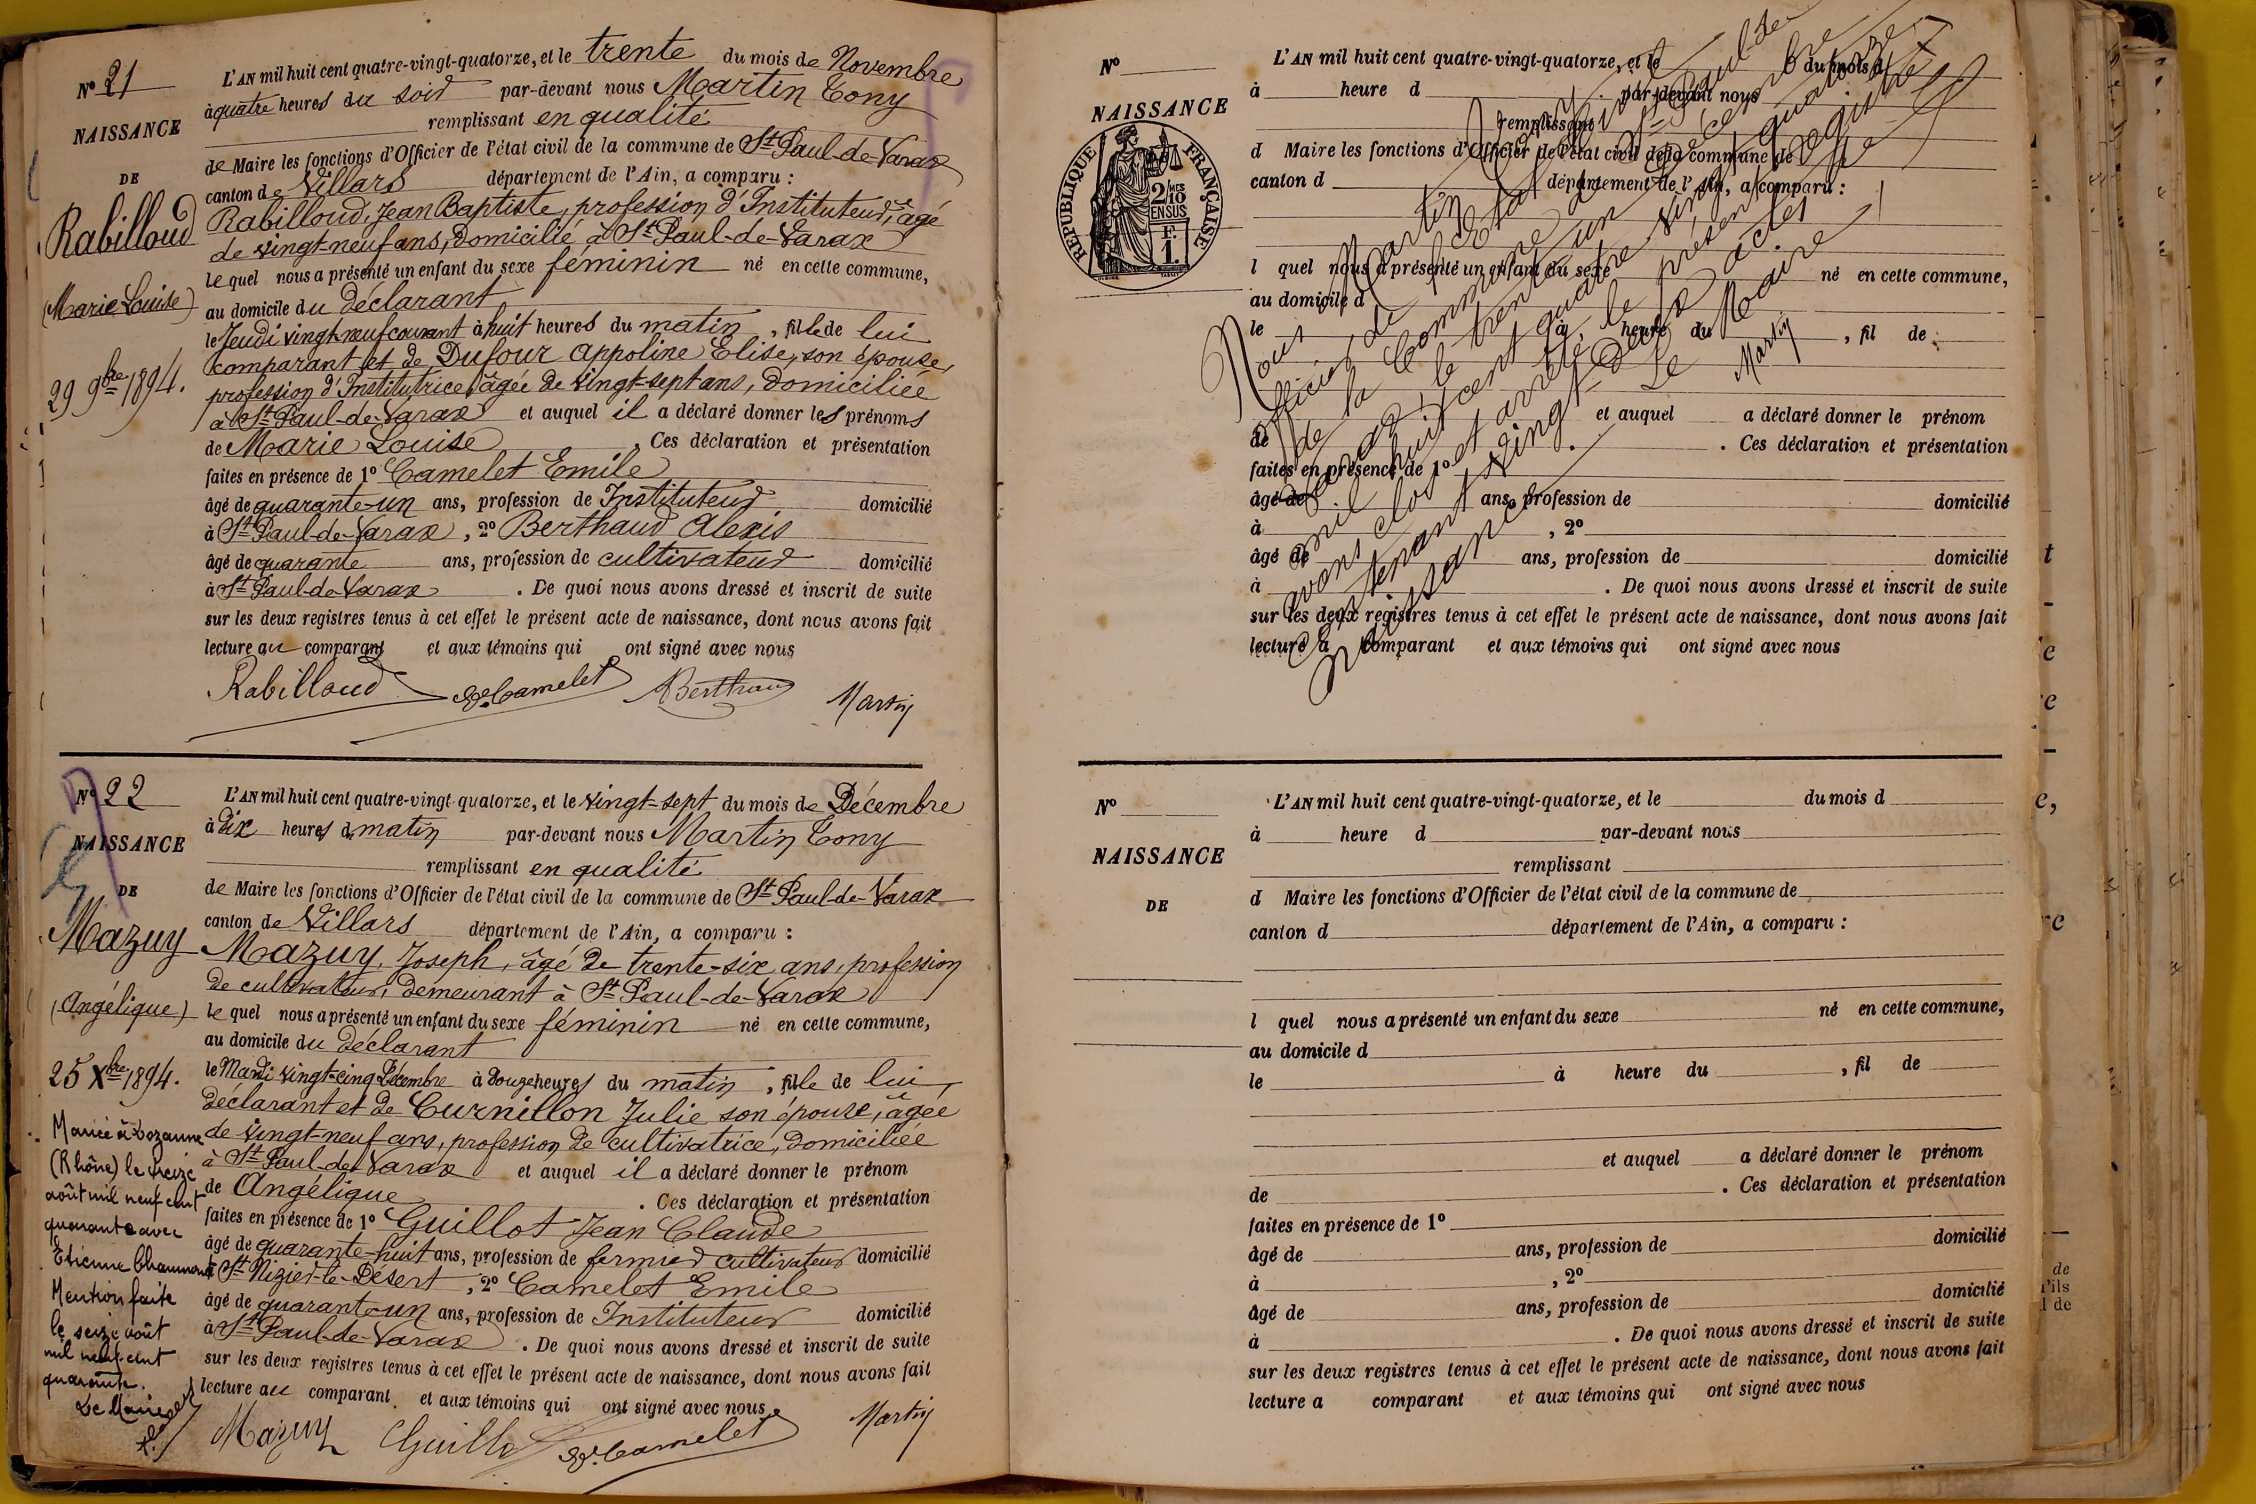 N° 21
NAISSANCE
DE
Rabilloud
(Marie Louise)
29 9bre 1894.
L'AN mil huit cent quatre-vingt-quatorze, et le trente du mois de Novembre
à quatre heures du soir par-devant nous Martin Tony
remplissant en qualité
de Maire les fonctions d'Officier de l'état civil de la commune de St Paul-de-Varax
canton de Villars département de l'Ain, a comparu :
Rabilloud, Jean Baptiste, profession d'Instituteur, âgé
de vingt-neuf ans, domicilié à St Paul-de-Varax
lequel nous a présenté un enfant du sexe féminin né en cette commune,
au domicile du déclarant
le Jeudi vingt-neuf courant à huit heures du matin, fille de lui
comparant et de Dufour Appoline Elise, son épouse,
profession d'Institutrice, âgée de vingt-sept ans, domiciliée
à St Paul-de-Varax et auquel il a déclaré donner les prénoms
de Marie Louise. Ces déclaration et présentation
faites en présence de 1° Camelet Emile
âgé de quarante-un ans, profession de Instituteur domicilié
à St Paul-de-Varax, 2° Berthaud Alexis
âgé de quarante ans, profession de cultivateur domicilié
à St Paul-de-Varax. De quoi nous avons dressé et inscrit de suite
sur les deux registres tenus à cet effet le présent acte de naissance, dont nous avons fait
lecture au comparant et aux témoins qui ont signé avec nous
Rabilloud E. Camelet ABerthaud Martin
N° 22
NAISSANCE
DE
Mazuy
(Angélique)
25 Xbre 1894.
Mariée à Lozanne
(Rhône) le seize
août mil neuf cent
quarante avec
Etienne Chaumont
Mention faite
le seize août
mil neuf cent
quarante.
Le Maire
L'AN mil huit cent quatre-vingt-quatorze, et le vingt-sept du mois de Décembre
à dix heures d matin par-devant nous Martin Tony
remplissant en qualité
de Maire les fonctions d'Officier de l'état civil de la commune de St Paul-de-Varax
canton de Villars département de l'Ain, a comparu :
Mazuy, Joseph, âgé de trente-six ans, profession
de cultivateur, demeurant à St Paul-de-Varax
lequel nous a présenté un enfant du sexe féminin né en cette commune,
au domicile du déclarant
le Mardi vingt-cinq Décembre à douze heures du matin, fille de lui
déclarant et de Curnillon Julie son épouse, âgée
de vingt-neuf ans, profession de cultivatrice, domiciliée
à St Paul-de-Varax et auquel il a déclaré donner le prénom
de Angélique. Ces déclaration et présentation
faites en présence de 1° Guillot Jean Claude
âgé de quarante-huit ans, profession de fermier cultivateur domicilié
à St Nizier-le-Désert, 2° Camelet Emile
âgé de quarante-un ans, profession de Instituteur domicilié
à St Paul-de-Varax. De quoi nous avons dressé et inscrit de suite
sur les deux registres tenus à cet effet le présent acte de naissance, dont nous avons fait
lecture au comparant et aux témoins qui ont signé avec nous.
Mazuy Guillot E. Camelet Martin
N°
NAISSANCE
RÉPUBLIQUE FRANÇAISE
2/10 MES
EN SUS
F.
1.
L'AN mil huit cent quatre-vingt-quatorze, et le du mois d
à heure d par-devant nous
remplissant
d Maire les fonctions d'Officier de l'état civil de la commune de
canton d département de l'Ain, a comparu :
l quel nous a présenté un enfant du sexe né en cette commune,
au domicile d
le à heure du , fil de
et auquel a déclaré donner le prénom
de . Ces déclaration et présentation
faites en présence de 1°
âgé de ans, profession de domicilié
à , 2°
âgé de ans, profession de domicilié
à . De quoi nous avons dressé et inscrit de suite
sur les deux registres tenus à cet effet le présent acte de naissance, dont nous avons fait
lecture a comparant et aux témoins qui ont signé avec nous
Nous Martin Tony
officier de l'Etat civil
de la Commune de St Paul de
Varax, le trente un Décembre
mil huit cent quatre vingt quatorze
avons clos et arrêté le présent registre
contenant vingt-deux actes de
naissance.
Le Maire
Martin
N°
NAISSANCE
DE
L'AN mil huit cent quatre-vingt-quatorze, et le du mois d
à heure d par-devant nous
remplissant
d Maire les fonctions d'Officier de l'état civil de la commune de
canton d département de l'Ain, a comparu :
l quel nous a présenté un enfant du sexe né en cette commune,
au domicile d
le à heure du , fil de
et auquel a déclaré donner le prénom
de . Ces déclaration et présentation
faites en présence de 1°
âgé de ans, profession de domicilié
à , 2°
âgé de ans, profession de domicilié
à . De quoi nous avons dressé et inscrit de suite
sur les deux registres tenus à cet effet le présent acte de naissance, dont nous avons fait
lecture a comparant et aux témoins qui ont signé avec nous